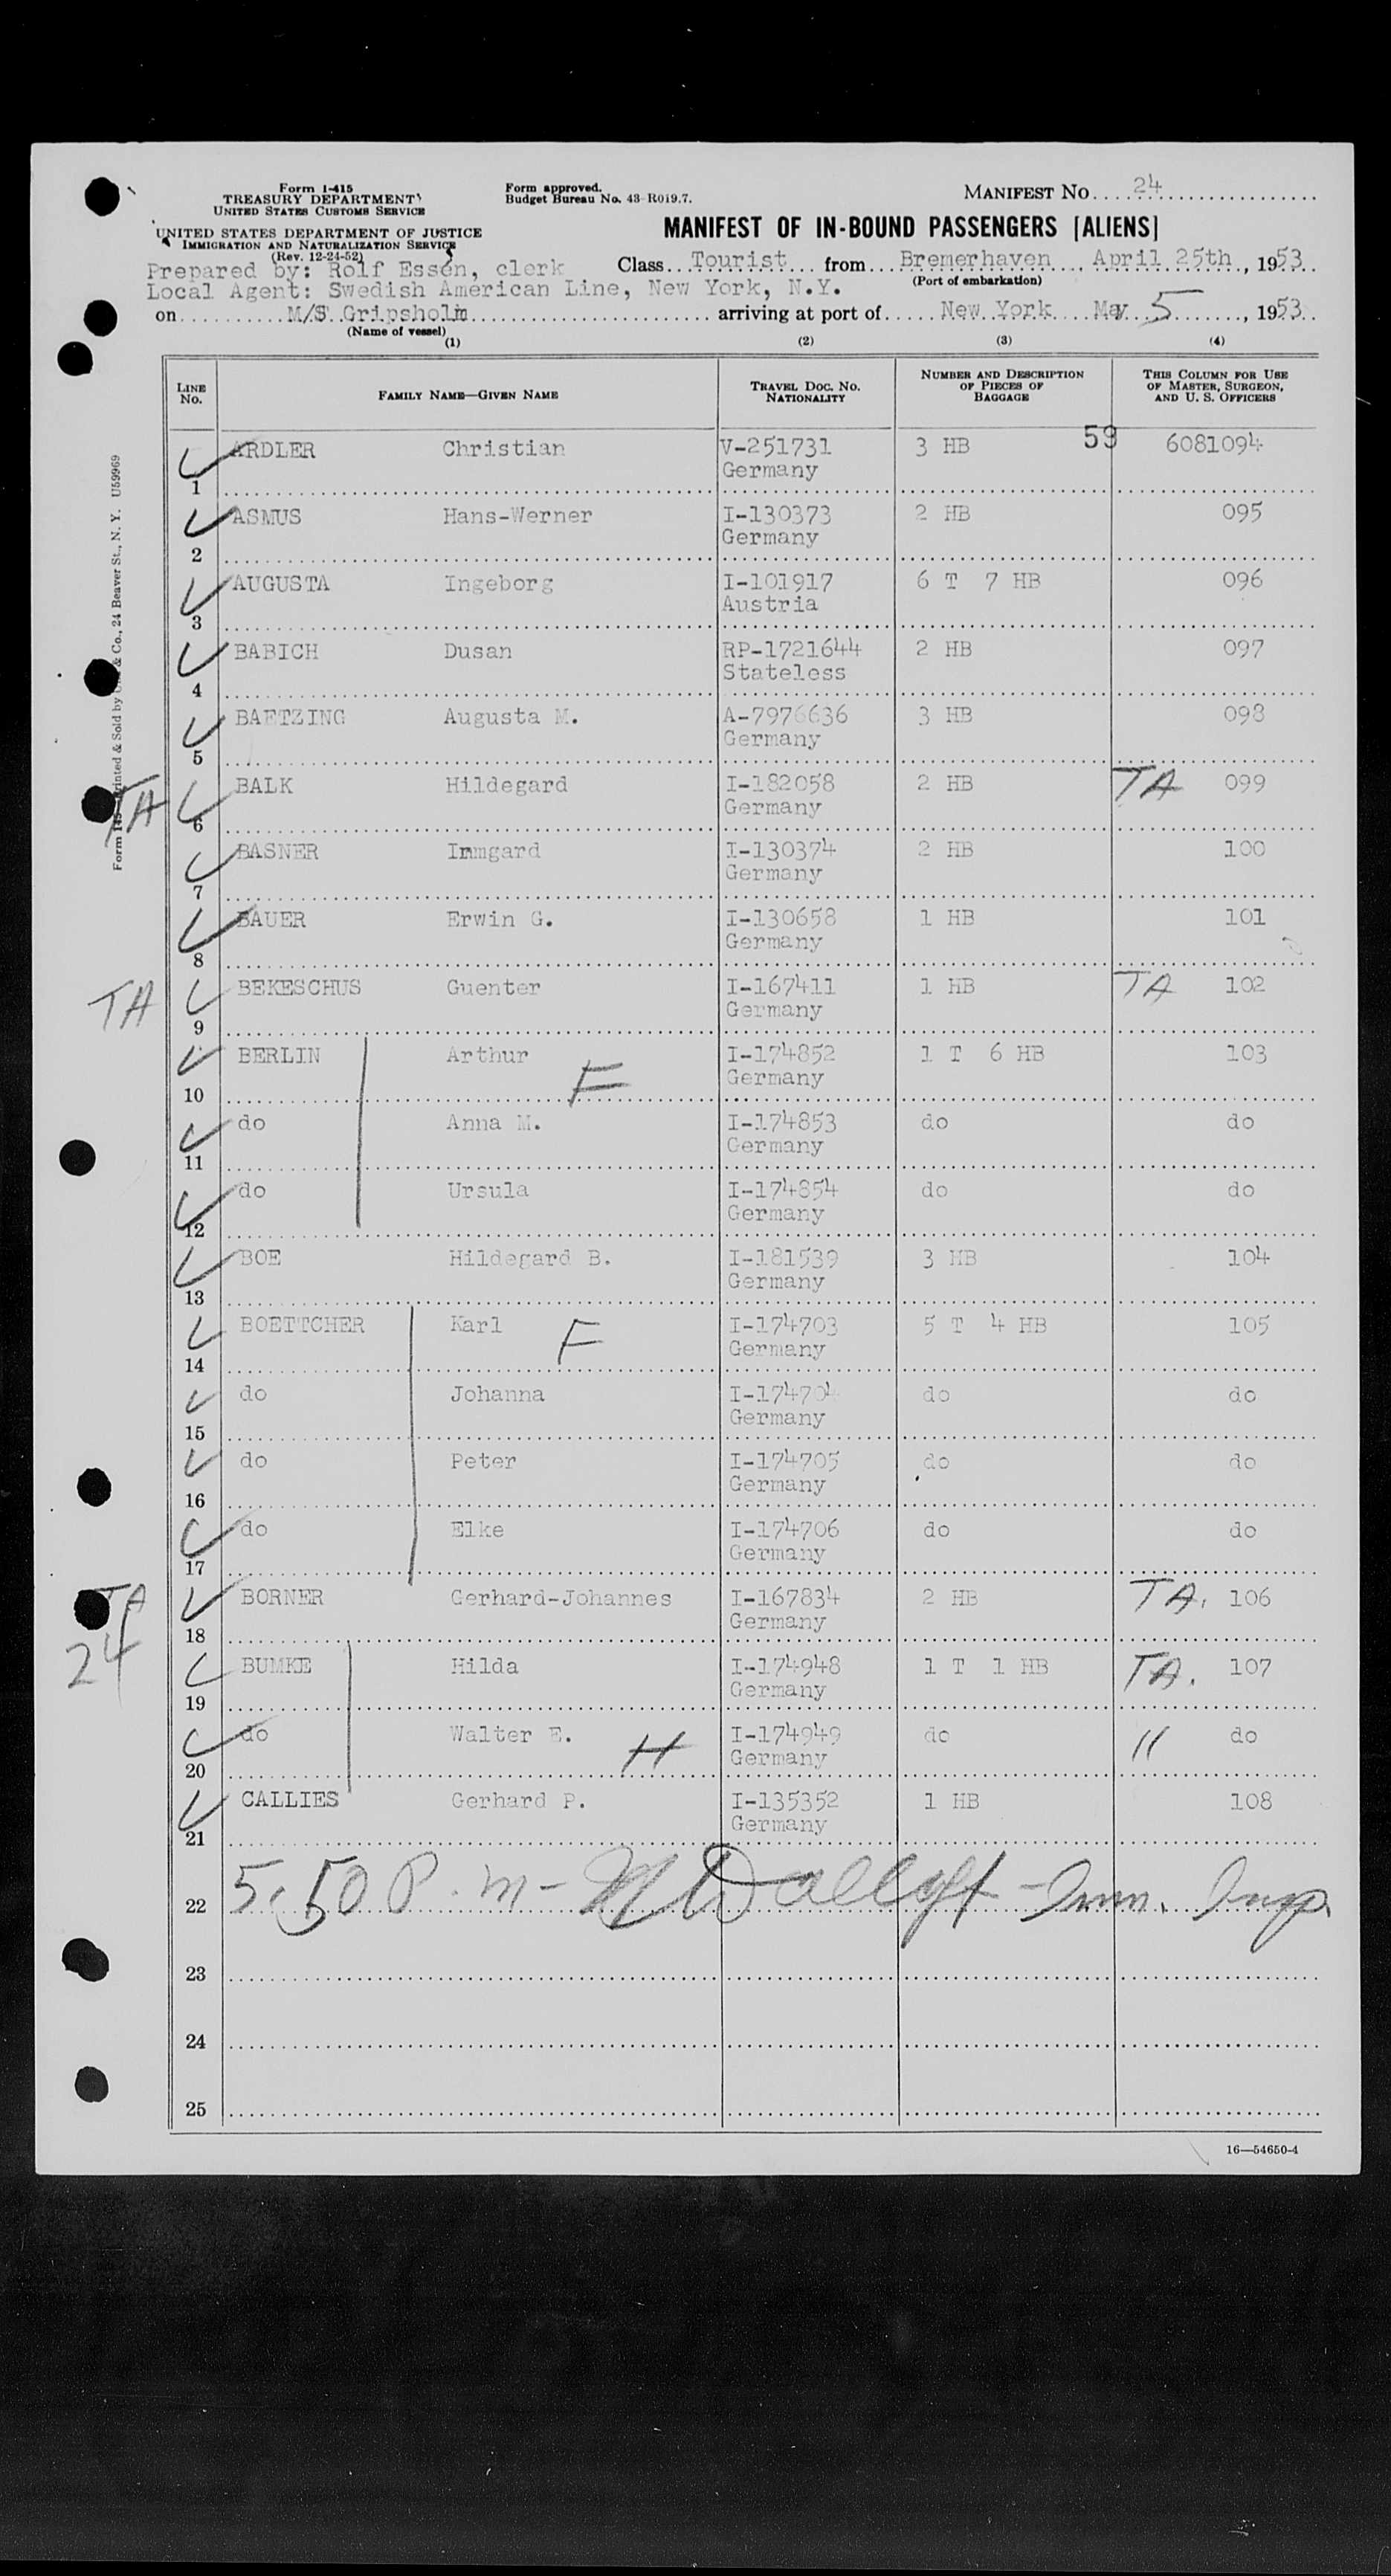 Form I-415
TREASURY DEPARTMENT
UNITED STATES CUSTOMS SERVICE
Form approved.
Budget Bureau No. 43-R019.7.
MANIFEST NO. 24
UNITED STATES DEPARTMENT OF JUSTICE
IMMIGRATION AND NATURALIZATION SERVICE
(Rev. 12-24-52)
MANIFEST OF IN-BOUND PASSENGERS [ALIENS]
Prepared by: Rolf Essén, clerk
Class Tourist from Bremerhaven, April 25th, 1953
(Port of embarkation)
Local Agent: Swedish American Line, New York, N.Y.
on M/S Gripsholm arriving at port of New York May 5, 1953
(Name of vessel)
(1) (2) (3) (4)
LINE NO.
FAMILY NAME—GIVEN NAME
TRAVEL DOC. NO. NATIONALITY
NUMBER AND DESCRIPTION OF PIECES OF BAGGAGE
THIS COLUMN FOR USE OF MASTER, SURGEON, AND U. S. OFFICERS
59
1 ARDLER Christian V-251731 3 HB 6081094
Germany
2 ASMUS Hans-Werner I-130373 2 HB 095
Germany
3 AUGUSTA Ingeborg I-101917 6 T 7 HB 096
Austria
4 BABICH Dusan RP-1721644 2 HB 097
Stateless
5 BAETZING Augusta M. A-7976636 3 HB 098
Germany
TA 6 BALK Hildegard I-182058 2 HB TA 099
Germany
7 BASNER Irmgard I-130374 2 HB 100
Germany
8 BAUER Erwin G. I-130658 1 HB 101
Germany
TA 9 BEKESCHUS Guenter I-167411 1 HB TA 102
Germany
10 BERLIN Arthur F I-174852 1 T 6 HB 103
Germany
11 do Anna M. I-174853 do do
Germany
12 do Ursula I-174854 do do
Germany
13 BOE Hildegard B. I-181539 3 HB 104
Germany
14 BOETTCHER Karl F I-174703 5 T 4 HB 105
Germany
15 do Johanna I-174704 do do
Germany
16 do Peter I-174705 do do
Germany
17 do Elke I-174706 do do
Germany
TA 18 BORNER Gerhard-Johannes I-167834 2 HB TA. 106
Germany
24
19 BUMKE Hilda I-174948 1 T 1 HB TA. 107
Germany
20 do Walter E. H I-174949 do " do
Germany
21 CALLIES Gerhard P. I-135352 1 HB 108
Germany
22 5.50 P.m - Imm. Insp.
23
24
25
16—54650-4
& Co., 24 Beaver St., N. Y. U59969